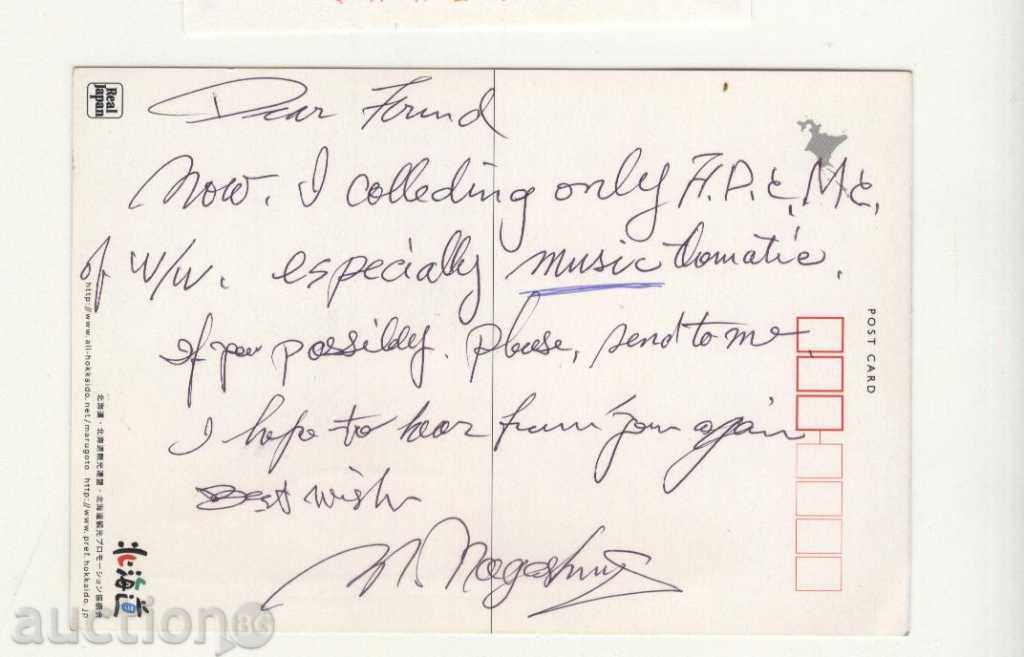 Real
Japan
Dear Forind
Now. I colleding only F.D.C, M.C,
of w/w. especially music tomatic.
If you possibly. Please, send to me
I hope to hear from you again
Best wish
POST CARD
http://www.all-hokkaido.net/marugoto http://www.pref.hokkaido.jp
北海道・北海道観光連盟・北海道観光プロモーション協議会
北海道
auction BG